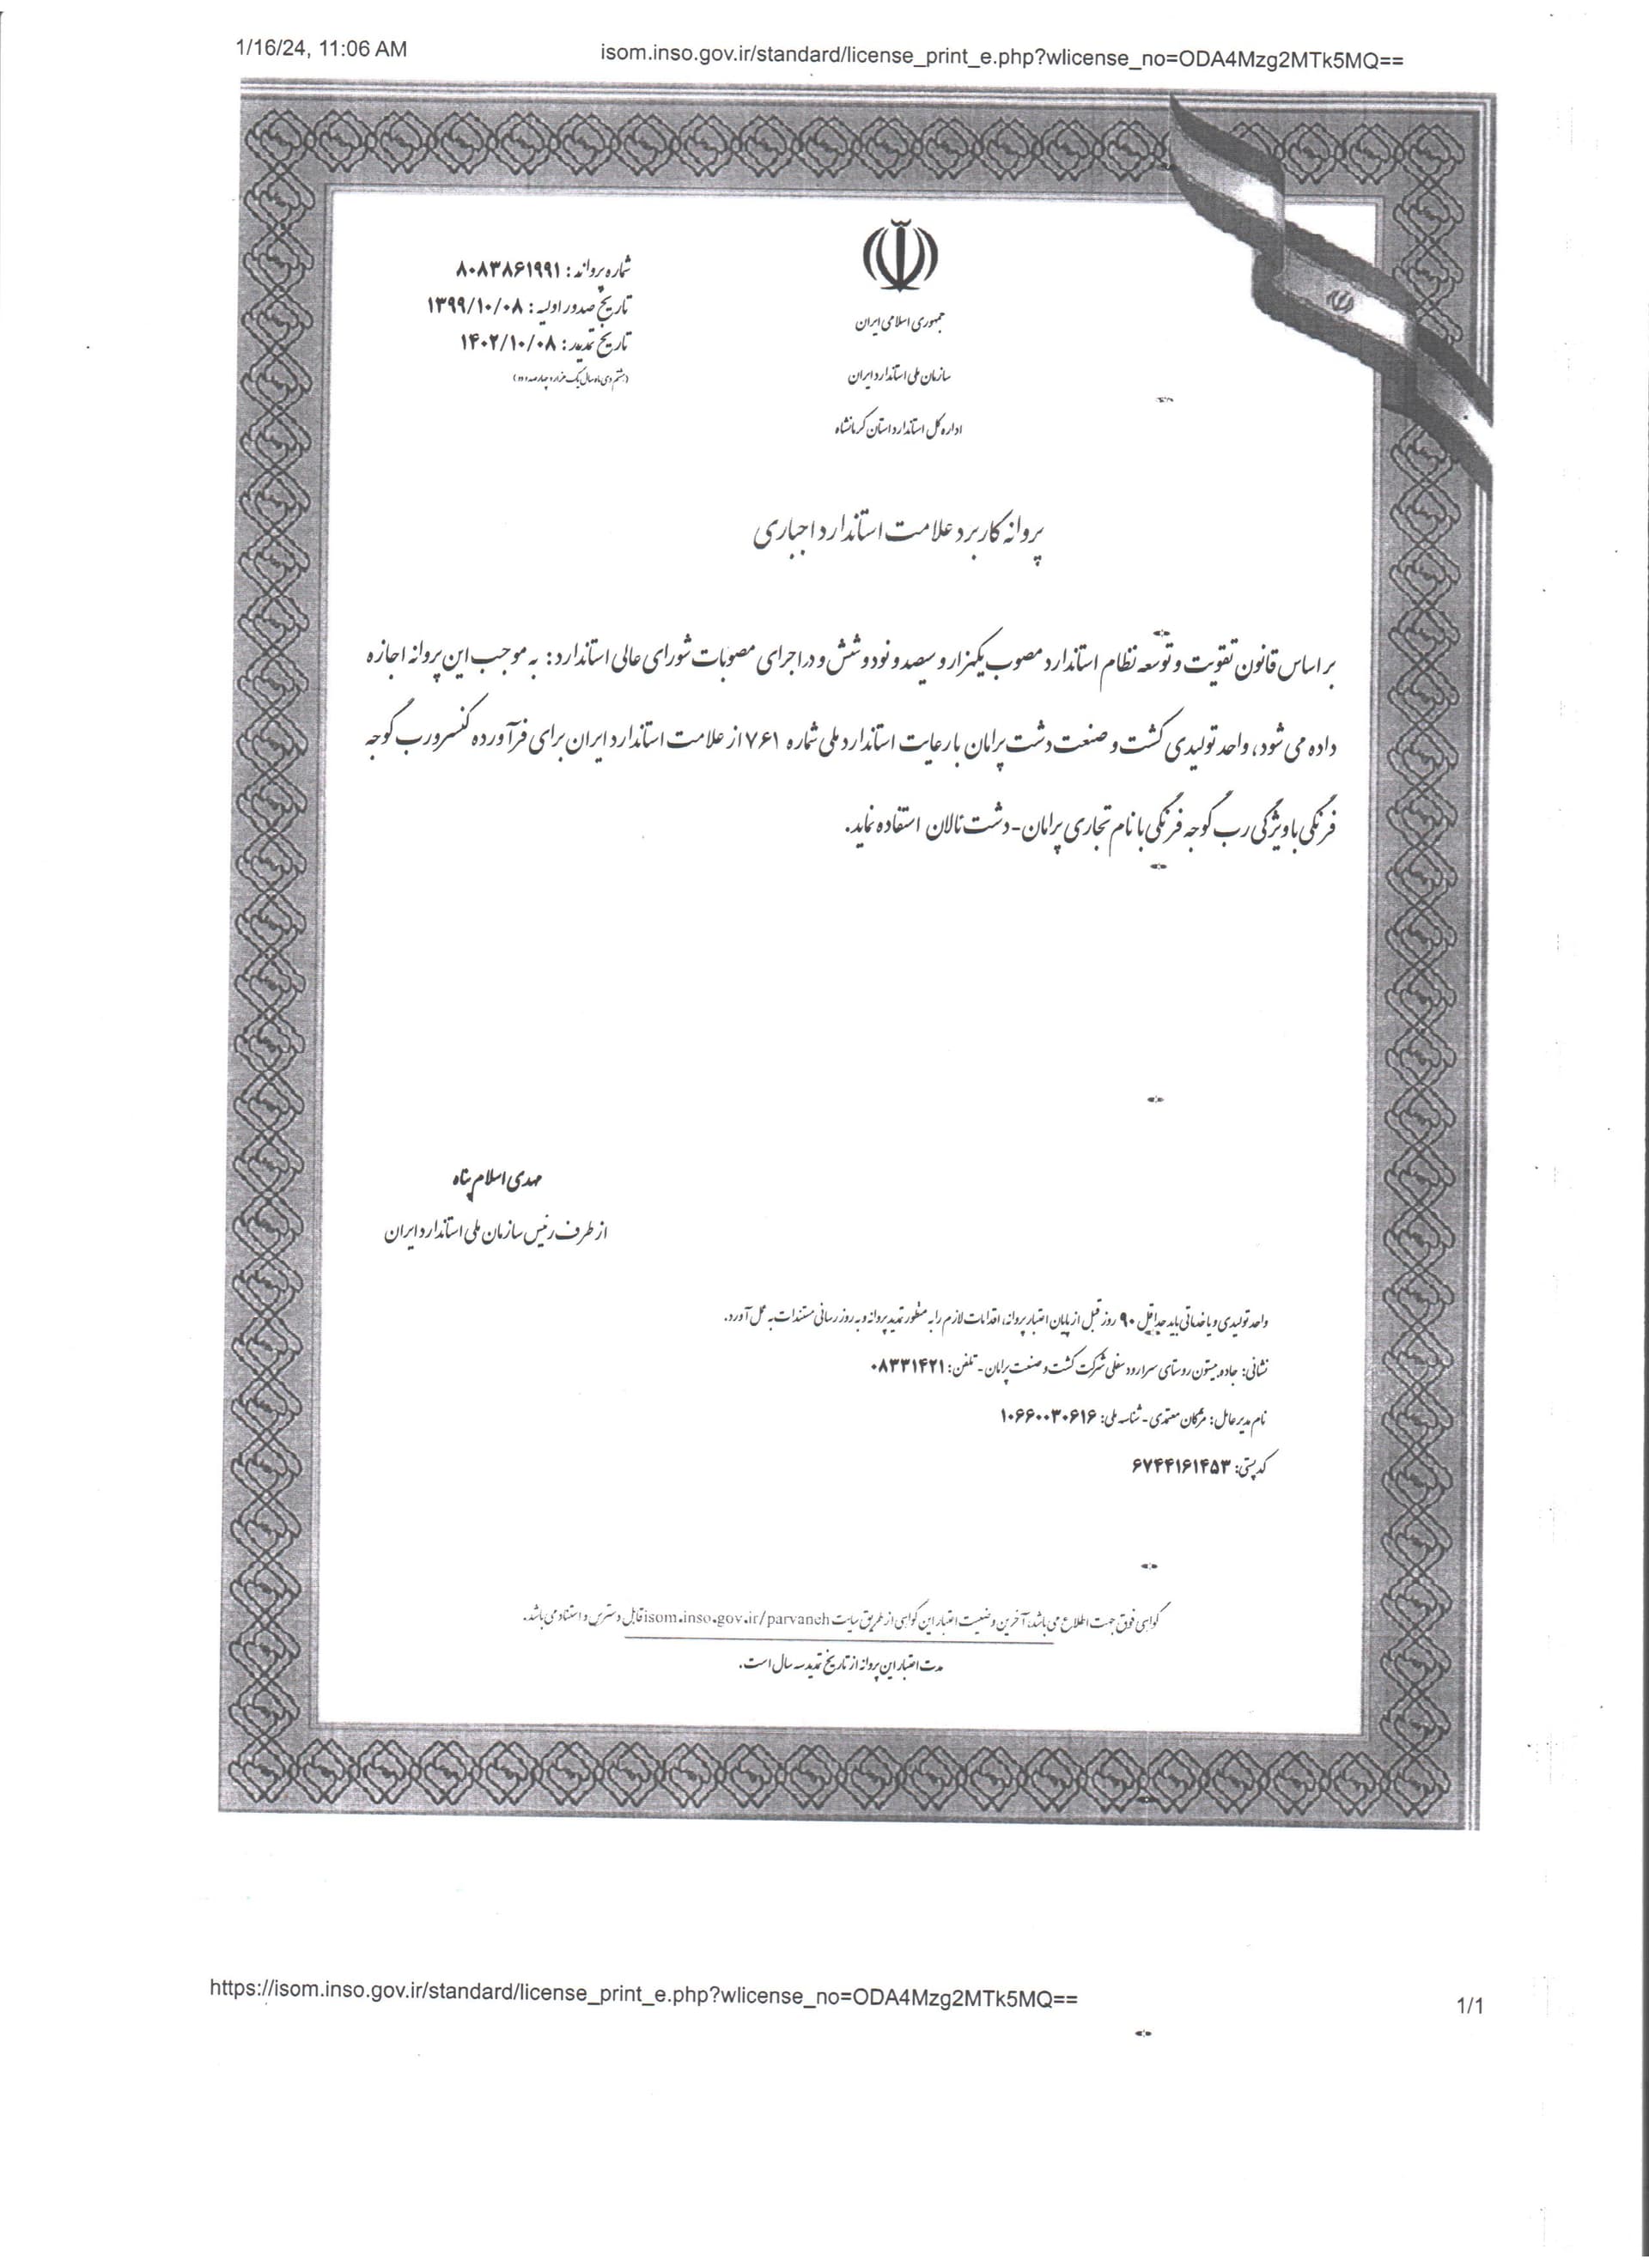 1/16/24, 11:06 AM
isom.inso.gov.ir/standard/license_print_e.php?wlicense_no=ODA4Mzg2MTk5MQ==
شماره پروانه : ۸۰۸۳۸۶۱۹۹۱
تاریخ صدور اولیه : ۱۳۹۹/۱۰/۰۸
تاریخ تمدید : ۱۴۰۲/۱۰/۰۸
(هشتم دی ماه سال یک هزار و چهارصد و دو)
جمهوری اسلامی ایران
سازمان ملی استاندارد ایران
اداره کل استاندارد استان کرمانشاه
پروانه کاربرد علامت استاندارد اجباری
بر اساس قانون تقویت و توسعه نظام استاندارد مصوب یکهزار و سیصد و نود و شش و در اجرای مصوبات شورای عالی استاندارد: به موجب این پروانه اجازه
داده می شود، واحد تولیدی کشت و صنعت دشت پرامان با رعایت استاندارد ملی شماره ۷۶۱ از علامت استاندارد ایران برای فرآورده کنسرو رب گوجه
فرنگی با ویژگی رب گوجه فرنگی با نام تجاری پرامان-دشت نالان استفاده نماید.
مهدی اسلام پناه
از طرف رئیس سازمان ملی استاندارد ایران
واحد تولیدی و یا خدماتی باید حداقل ۹۰ روز قبل از پایان اعتبار پروانه، اقدامات لازم را به منظور تمدید پروانه و به روز رسانی مستندات به عمل آورد.
نشانی: جاده بیستون روستای سرارود سفلی شرکت کشت و صنعت پرامان - تلفن: ۰۸۳۳۱۴۲۱
نام مدیر عامل: مژگان معتمدی - شناسه ملی: ۱۰۶۶۰۰۳۰۶۱۶
کد پستی: ۶۷۴۴۱۶۱۴۵۳
گواهی فوق جهت اطلاع می باشد، آخرین وضعیت اعتبار این گواهی از طریق سایت isom.inso.gov.ir/parvaneh قابل دسترس و استناد می باشد.
مدت اعتبار این پروانه از تاریخ تمدید سه سال است.
https://isom.inso.gov.ir/standard/license_print_e.php?wlicense_no=ODA4Mzg2MTk5MQ==
1/1